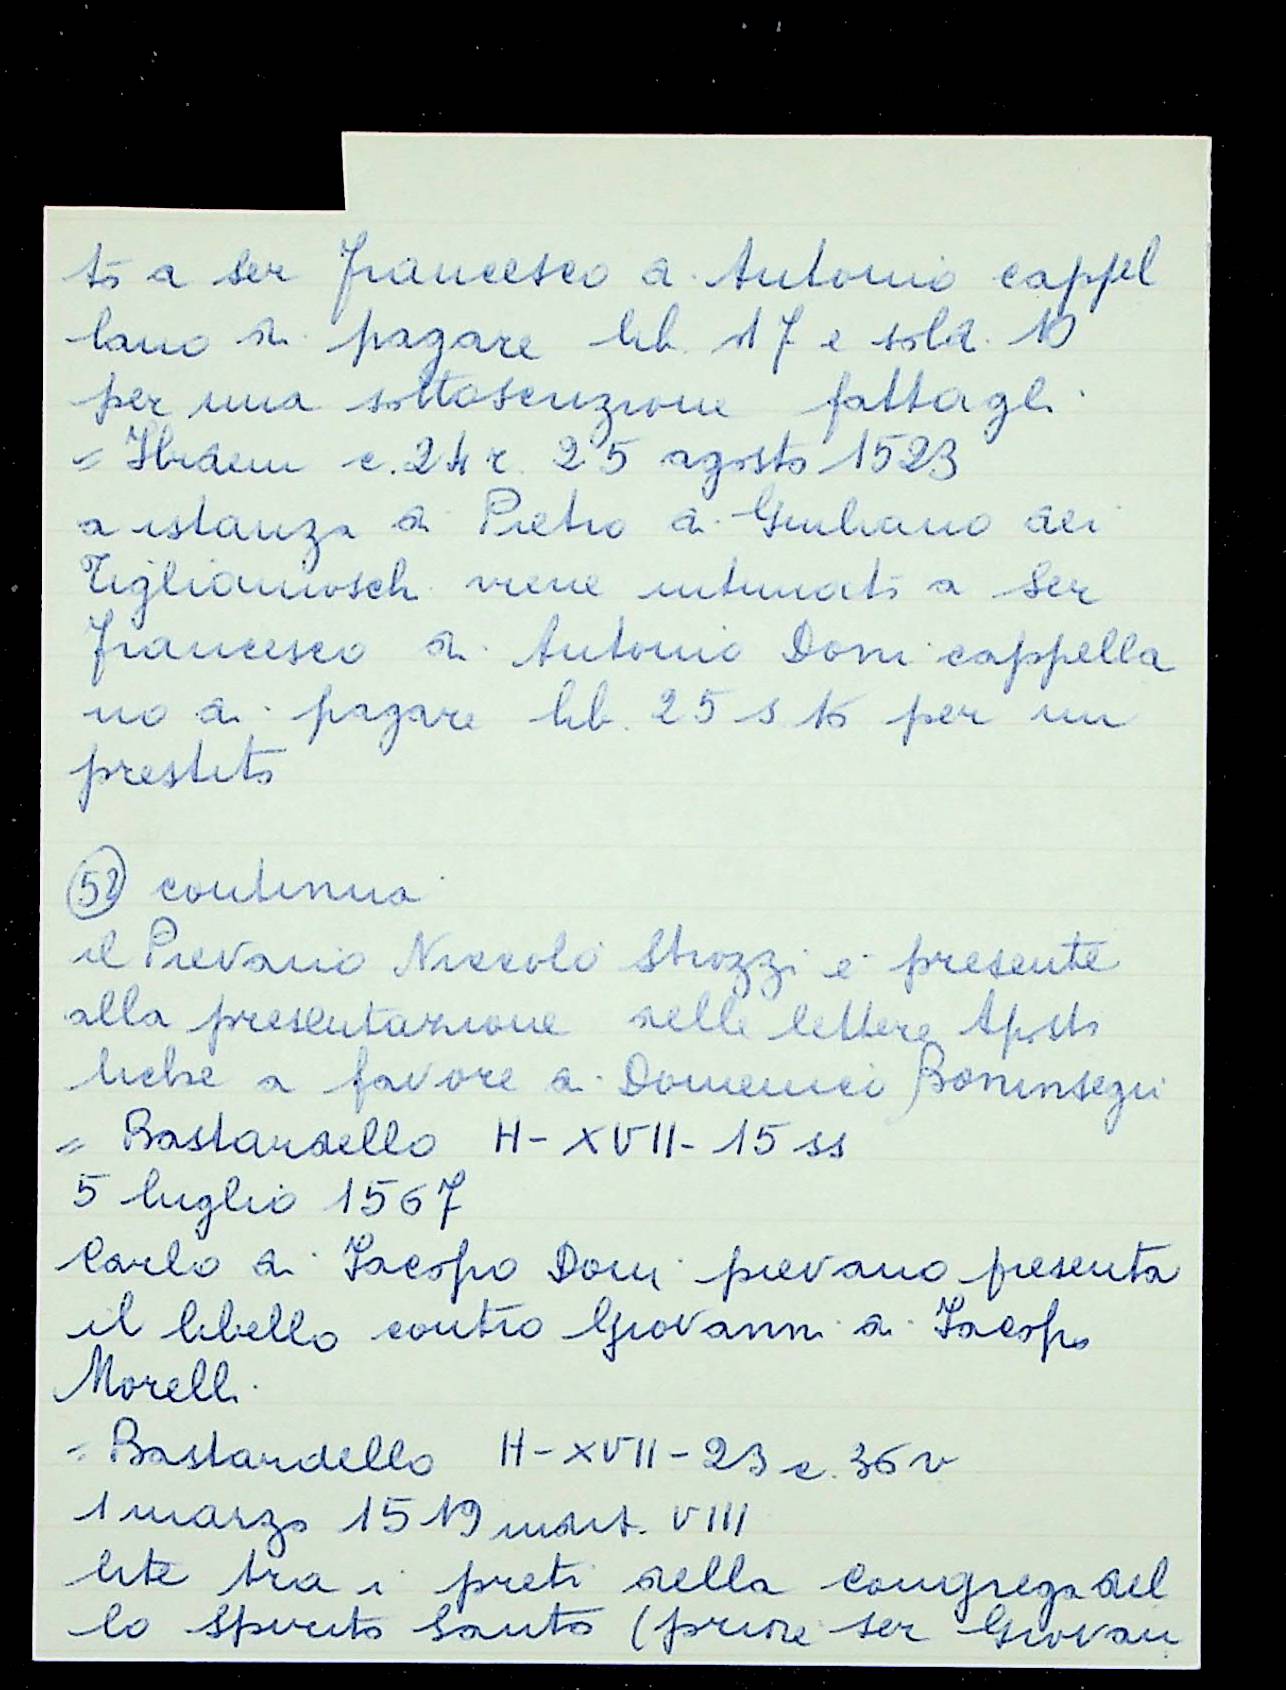 to a ser Francesco di Antonio cappel
lano di pagare lib. 17 e sold. 10
per una sottoscrizione fattagli
= Ibidem c. 24 r. 25 agosto 1523
a istanza di Pietro di Giuliano dei
Tiglamoschi viene intimato a Ser
Francesco di Antonio Doni cappella
no di pagare lib. 25 s per un
prestito
52 continua
il Pievano Niccolò Strozzi è presente
alla presentazione delle lettere Aposto
liche a favore di Domenico Boninsegni
= Bastardello H-XVII-15 ss
5 luglio 1567
Carlo di Iacopo Doni pievano presenta
il libello contro Giovanni di Iacopo
Morelli
= Bastardello H-XVII-23 c. 36 v
1 marzo 1519 indit. VIII
lite tra i preti della Congrega del
lo Spirito Santo (priore ser Giovan